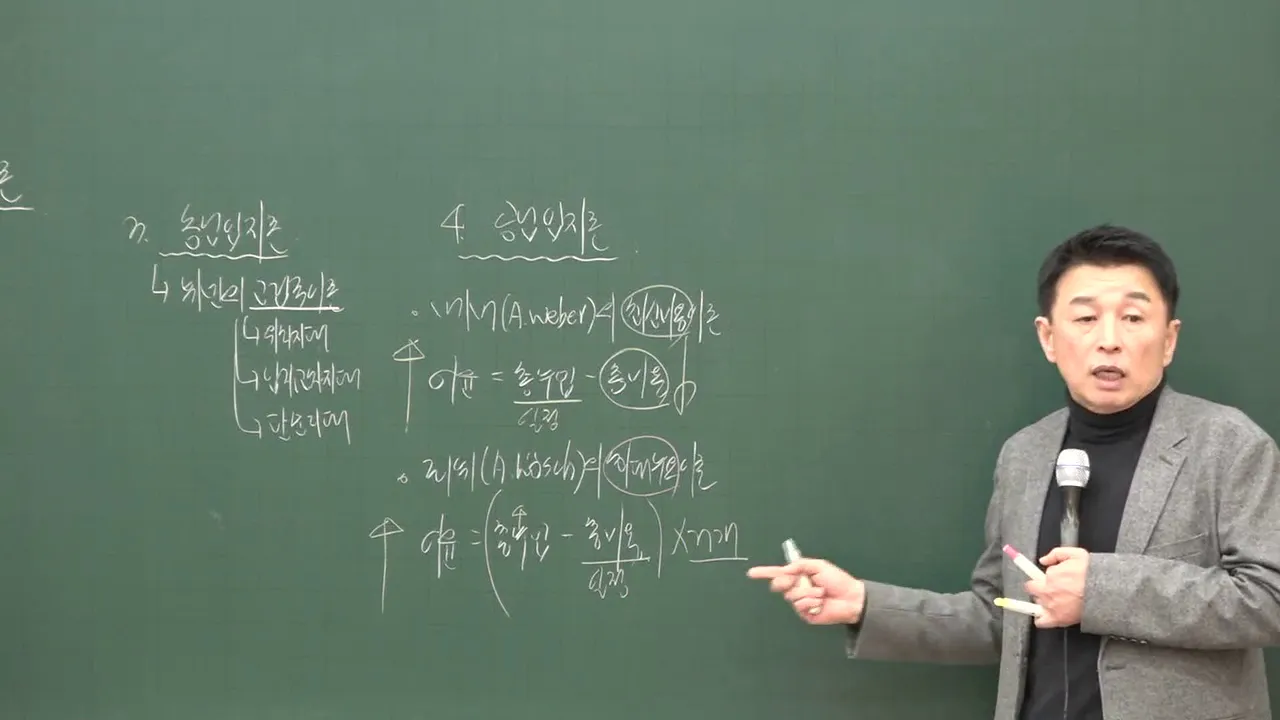 론
3. 농업입지론
↳ 튀넨의 고립국이론
↳ 위치지대
↳ 입찰지대
↳ 한계지대
4. 공업입지론
· 베버(A.weber)의 최소비용이론
↑ 이윤 = 총수입 - 총비용↓
일정
· 뢰쉬(A.Lösch)의 최대수요이론
↑ 이윤 = (총수입↑ - 총비용) × n개
일정